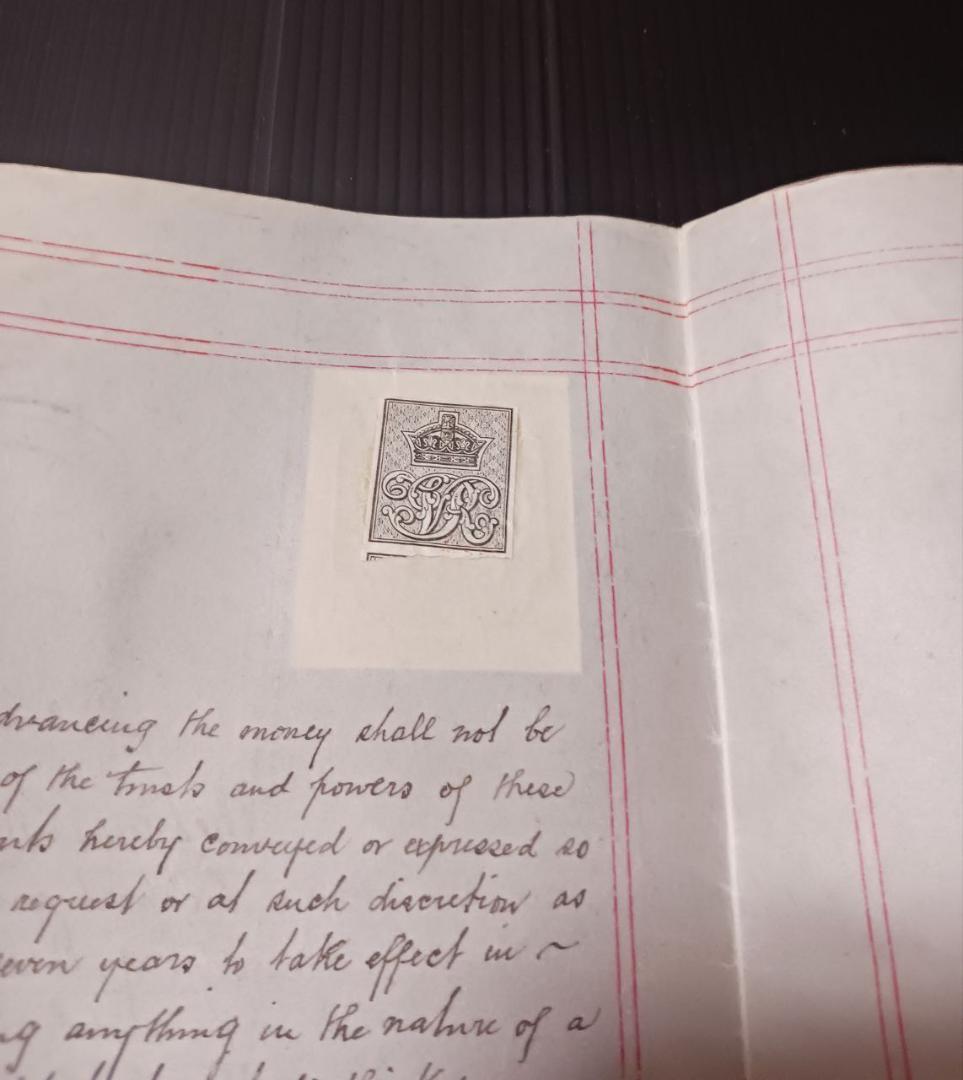 VR
advancing the money shall not be
of the trusts and powers of these
hereby conveyed or expressed so
request or at such discretion as
years to take effect in ~
anything in the nature of a